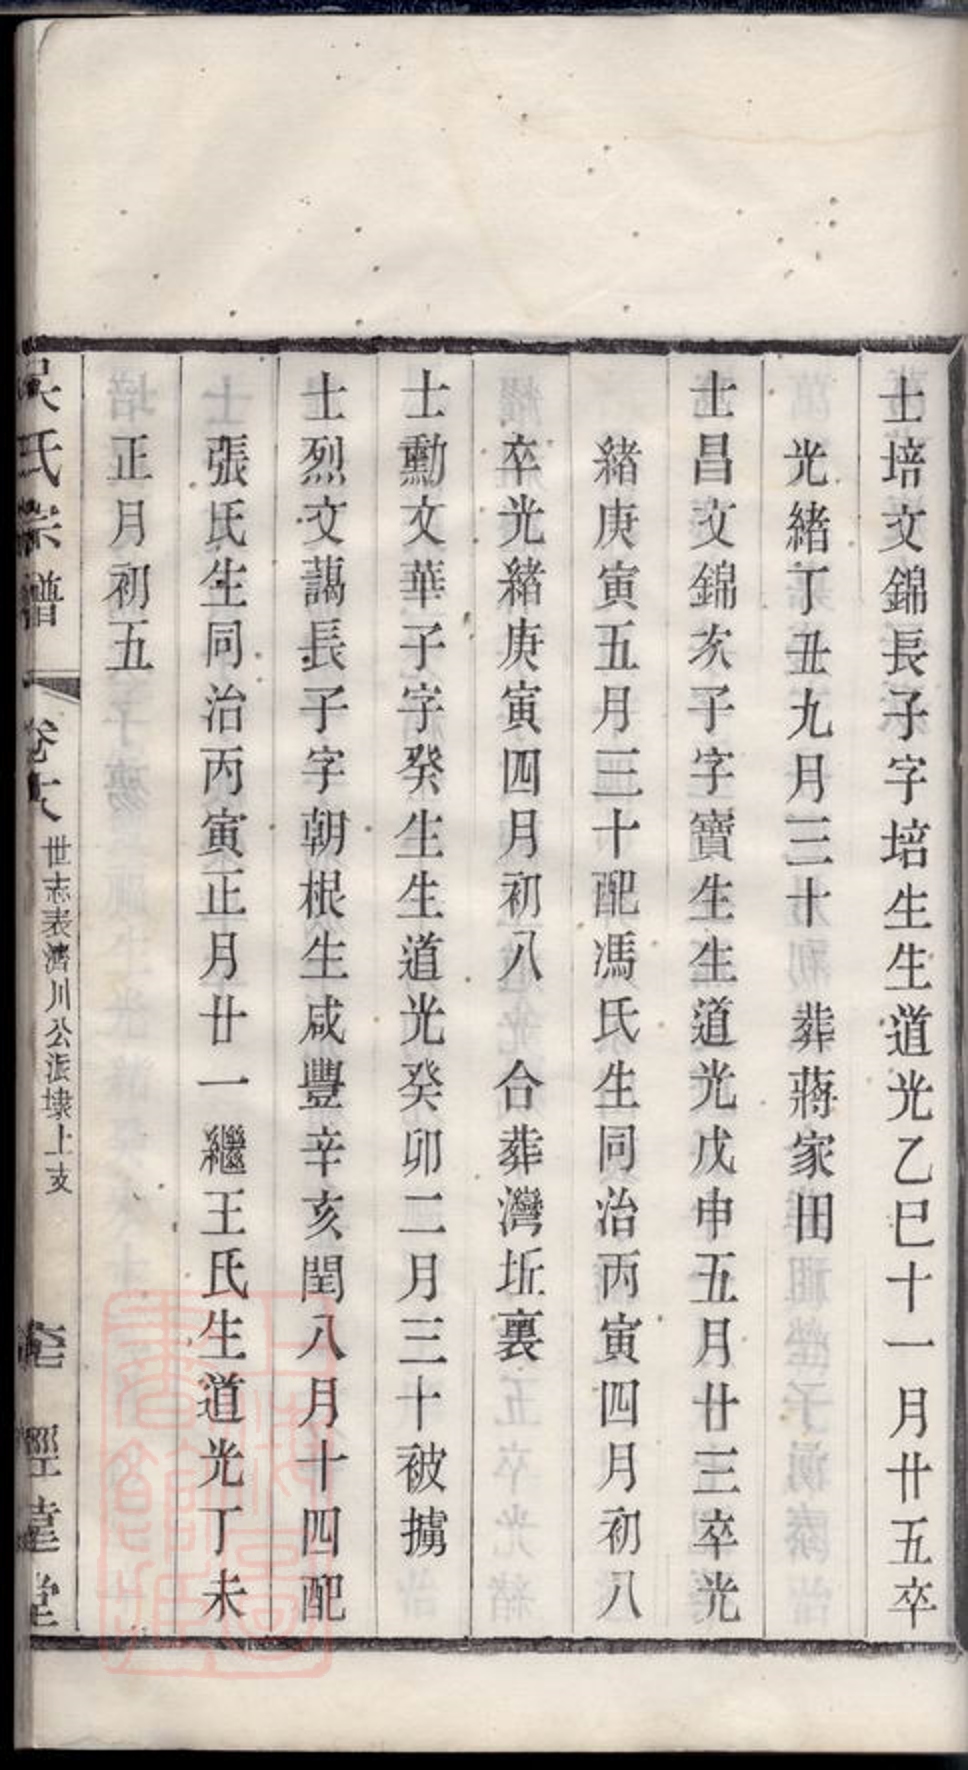 士培文錦長子字培生生道光乙巳十一月廿五卒
光緒丁丑九月三十 葬蔣家田
士昌文錦次子字寶生生道光戊申五月廿三卒光
緒庚寅五月三十配馮氏生同治丙寅四月初八
卒光緒庚寅四月初八 合葬灣坵裏
士勳文華子字癸生生道光癸卯二月三十被擄
士烈文藹長子字朝根生咸豐辛亥閏八月十四配
張氏生同治丙寅正月廿一繼王氏生道光丁未
正月初五
吳氏宗譜
卷六
世志表濟川公派埭上支
經堂